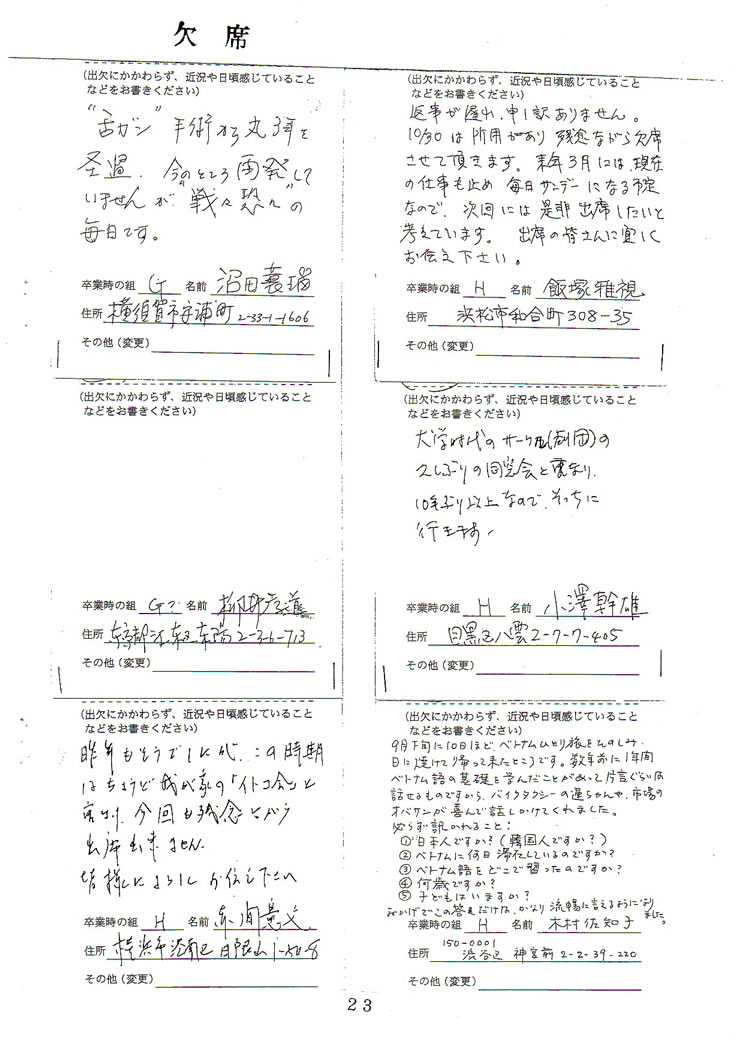 欠席
(出欠にかかわらず、近況や日頃感じていること
などをお書きください)
"舌ガン" 手術から丸3年を
経過、今のところ再発して
いませんが、"戦々恐々"の
毎日です。
卒業時の組 G 名前 沼田
住所 横須賀市安浦町 2-33-1-1606
その他(変更)
(出欠にかかわらず、近況や日頃感じていること
などをお書きください)
返事が遅れ、申し訳ありません。
10/30は所用があり残念ながら欠席
させて頂きます。来年3月には、現在
の仕事も止め 毎日サンデーになる予定
なので、次回には是非出席したいと
考えています。 出席の皆さんに宜しく
お伝え下さい。
卒業時の組 H 名前 飯塚雅視
住所 浜松市和合町308-35
その他(変更)
(出欠にかかわらず、近況や日頃感じていること
などをお書きください)
卒業時の組 G? 名前
住所 東京都江東区東陽2-3-6-713
その他(変更)
(出欠にかかわらず、近況や日頃感じていること
などをお書きください)
大学時代のサークル(劇団)の
久しぶりの同窓会と重なり、
10年ぶり以上なので、そっちに
行きます。
卒業時の組 H 名前 小澤幹雄
住所 目黒区八雲2-7-7-405
その他(変更)
(出欠にかかわらず、近況や日頃感じていること
などをお書きください)
昨年もそうでしたが、この時期
はちょうど我が家の「イトコ会」と
重なり、今回も残念ながら
出席出来ません。
皆様によろしくお伝え下さい
卒業時の組 H 名前
住所 横浜市港南区日限山1-50-8
その他(変更)
(出欠にかかわらず、近況や日頃感じていること
などをお書きください)
9月下旬に10日ほど、ベトナムひとり旅をたのしみ、
日に焼けて帰って来たところです。数年前に1年間
ベトナム語の基礎を学んだことがあって片言ぐらいは
話せるものですから、バイクタクシーの運ちゃんや、市場の
オバサンが喜んで話しかけてくれました。
必らず訊かれること:
①日本人ですか?(韓国人ですか?)
②ベトナムに何日滞在しているのですか?
③ベトナム語をどこで習ったのですか?
④何歳ですか?
⑤子どもはいますか?
おかげでこの答えだけは、かなり流暢に言えるようになりました。
卒業時の組 H 名前 木村佐知子
150-0001
住所 渋谷区 神宮前2-2-39-220
その他(変更)
23